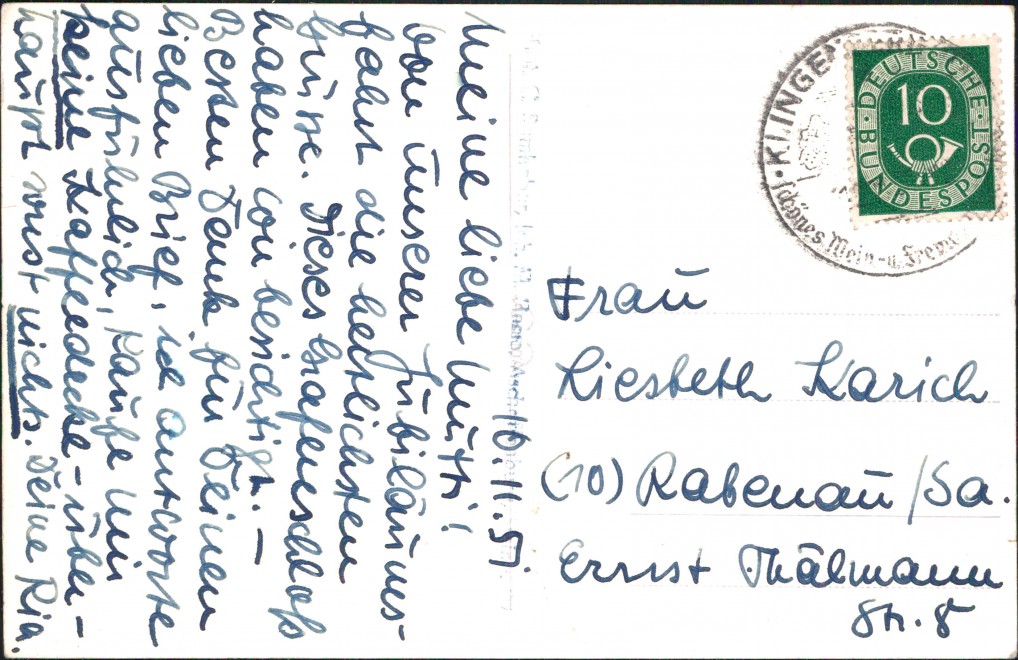 Meine liebe Mutti!
10.11.51.
Von unserer Jubiläums-
fahrt die herzlichsten
Grüsse. Dieses Grafenschloß
haben wir besichtigt. –
Besten Dank für Deinen
lieben Brief, ich antworte
ausführlich, kaufe mir
keine Kaffeedecke – über-
haupt sonst nichts. Deine Ria.
DEUTSCHE BUNDESPOST
10
KLINGE
schönes Wein- u.
Frau
Liesbeth Karich
(10) Rabenau/Sa.
Ernst Thälmann
Str. 8